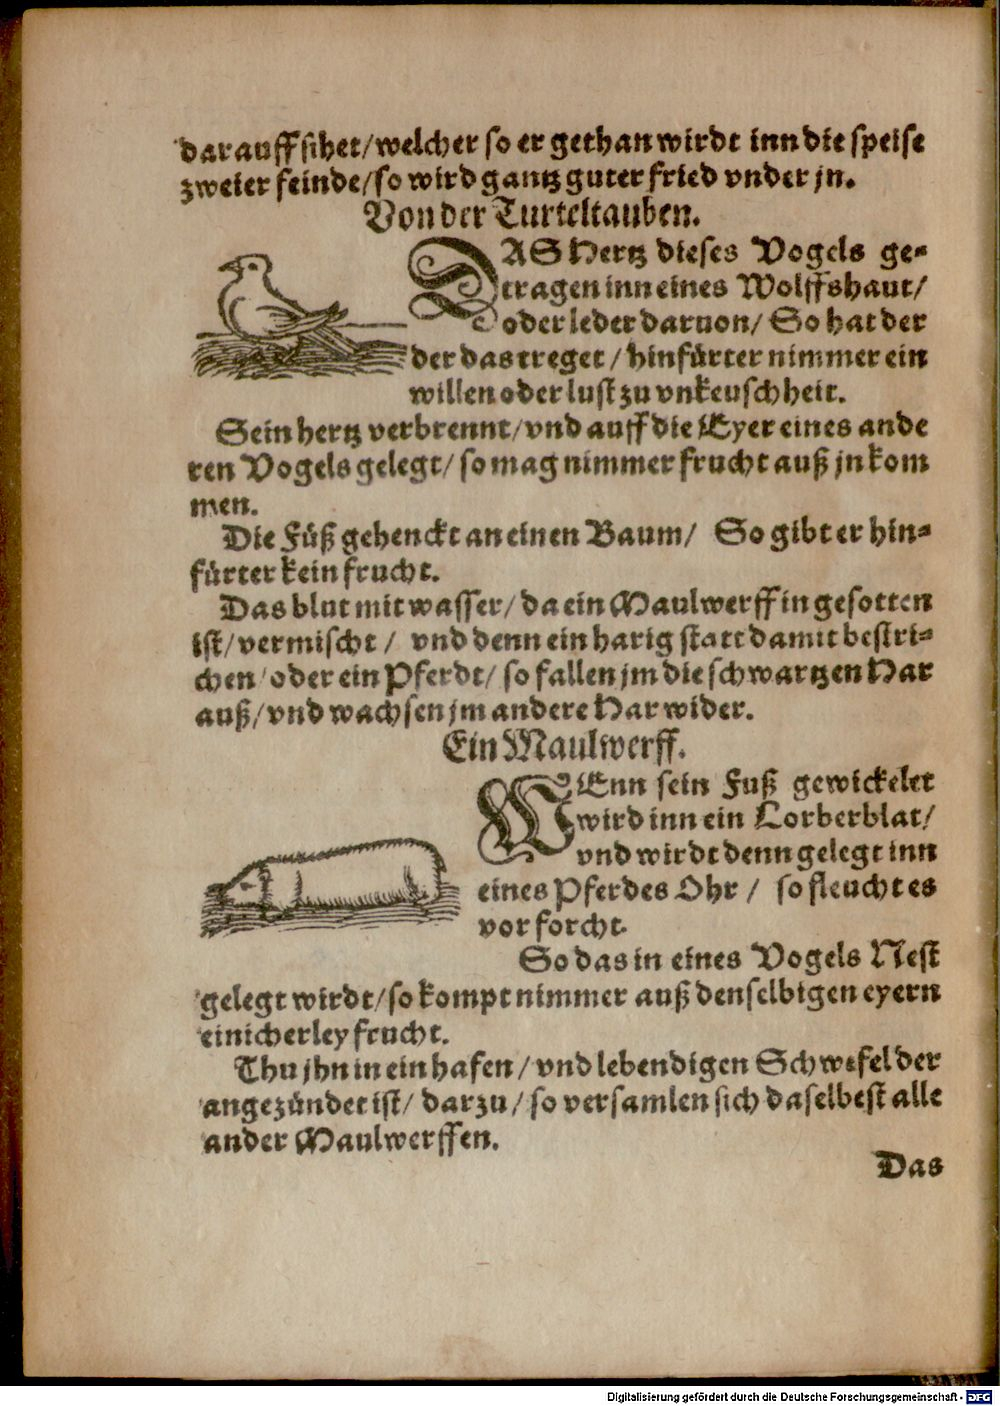 darauff sihet/welcher so er gethan wirdt inn die speise
zweier feinde/so wird gantz guter fried vnder jn.
Von der Turteltauben.
DAS Hertz dieses Vogels ge-
tragen inn eines Wolffshaut/
oder leder daruon/ So hat der
der das treget/ hinfürter nimmer ein
willen oder lust zu vnkeuschheit.
Sein hertz verbrennt/vnd auff die Eyer eines ande
ren Vogels gelegt/ so mag nimmer frucht auß jn kom
men.
Die Füß gehenckt an einen Baum/ So gibt er hin-
fürter kein frucht.
Das blut mit wasser/ da ein Maulwerff in gesotten
ist/ vermischt/ vnd denn ein harig statt damit bestri-
chen/ oder ein Pferdt/ so fallen jm die schwartzen Har
auß/ vnd wachsen jm andere Har wider.
Ein Maulwerff.
WEnn sein Fuß gewickelet
wird inn ein Lorberblat/
vnd wirdt denn gelegt inn
eines Pferdes Ohr/ so fleucht es
vor forcht.
So das in eines Vogels Nest
gelegt wirdt/ so kompt nimmer auß denselbigen eyern
einicherley frucht.
Thu jhn in ein hafen/ vnd lebendigen Schwefel der
angezündet ist/ darzu/ so versamlen sich daselbest alle
ander Maulwerffen.
Das
Digitalisierung gefördert durch die Deutsche Forschungsgemeinschaft - DFG